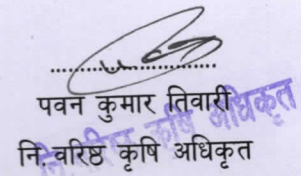 पवन कुमार तिवारी
नि.वरिष्ठ कृषि अधिकृत
नि.वरिष्ठ कृषि अधिकृत